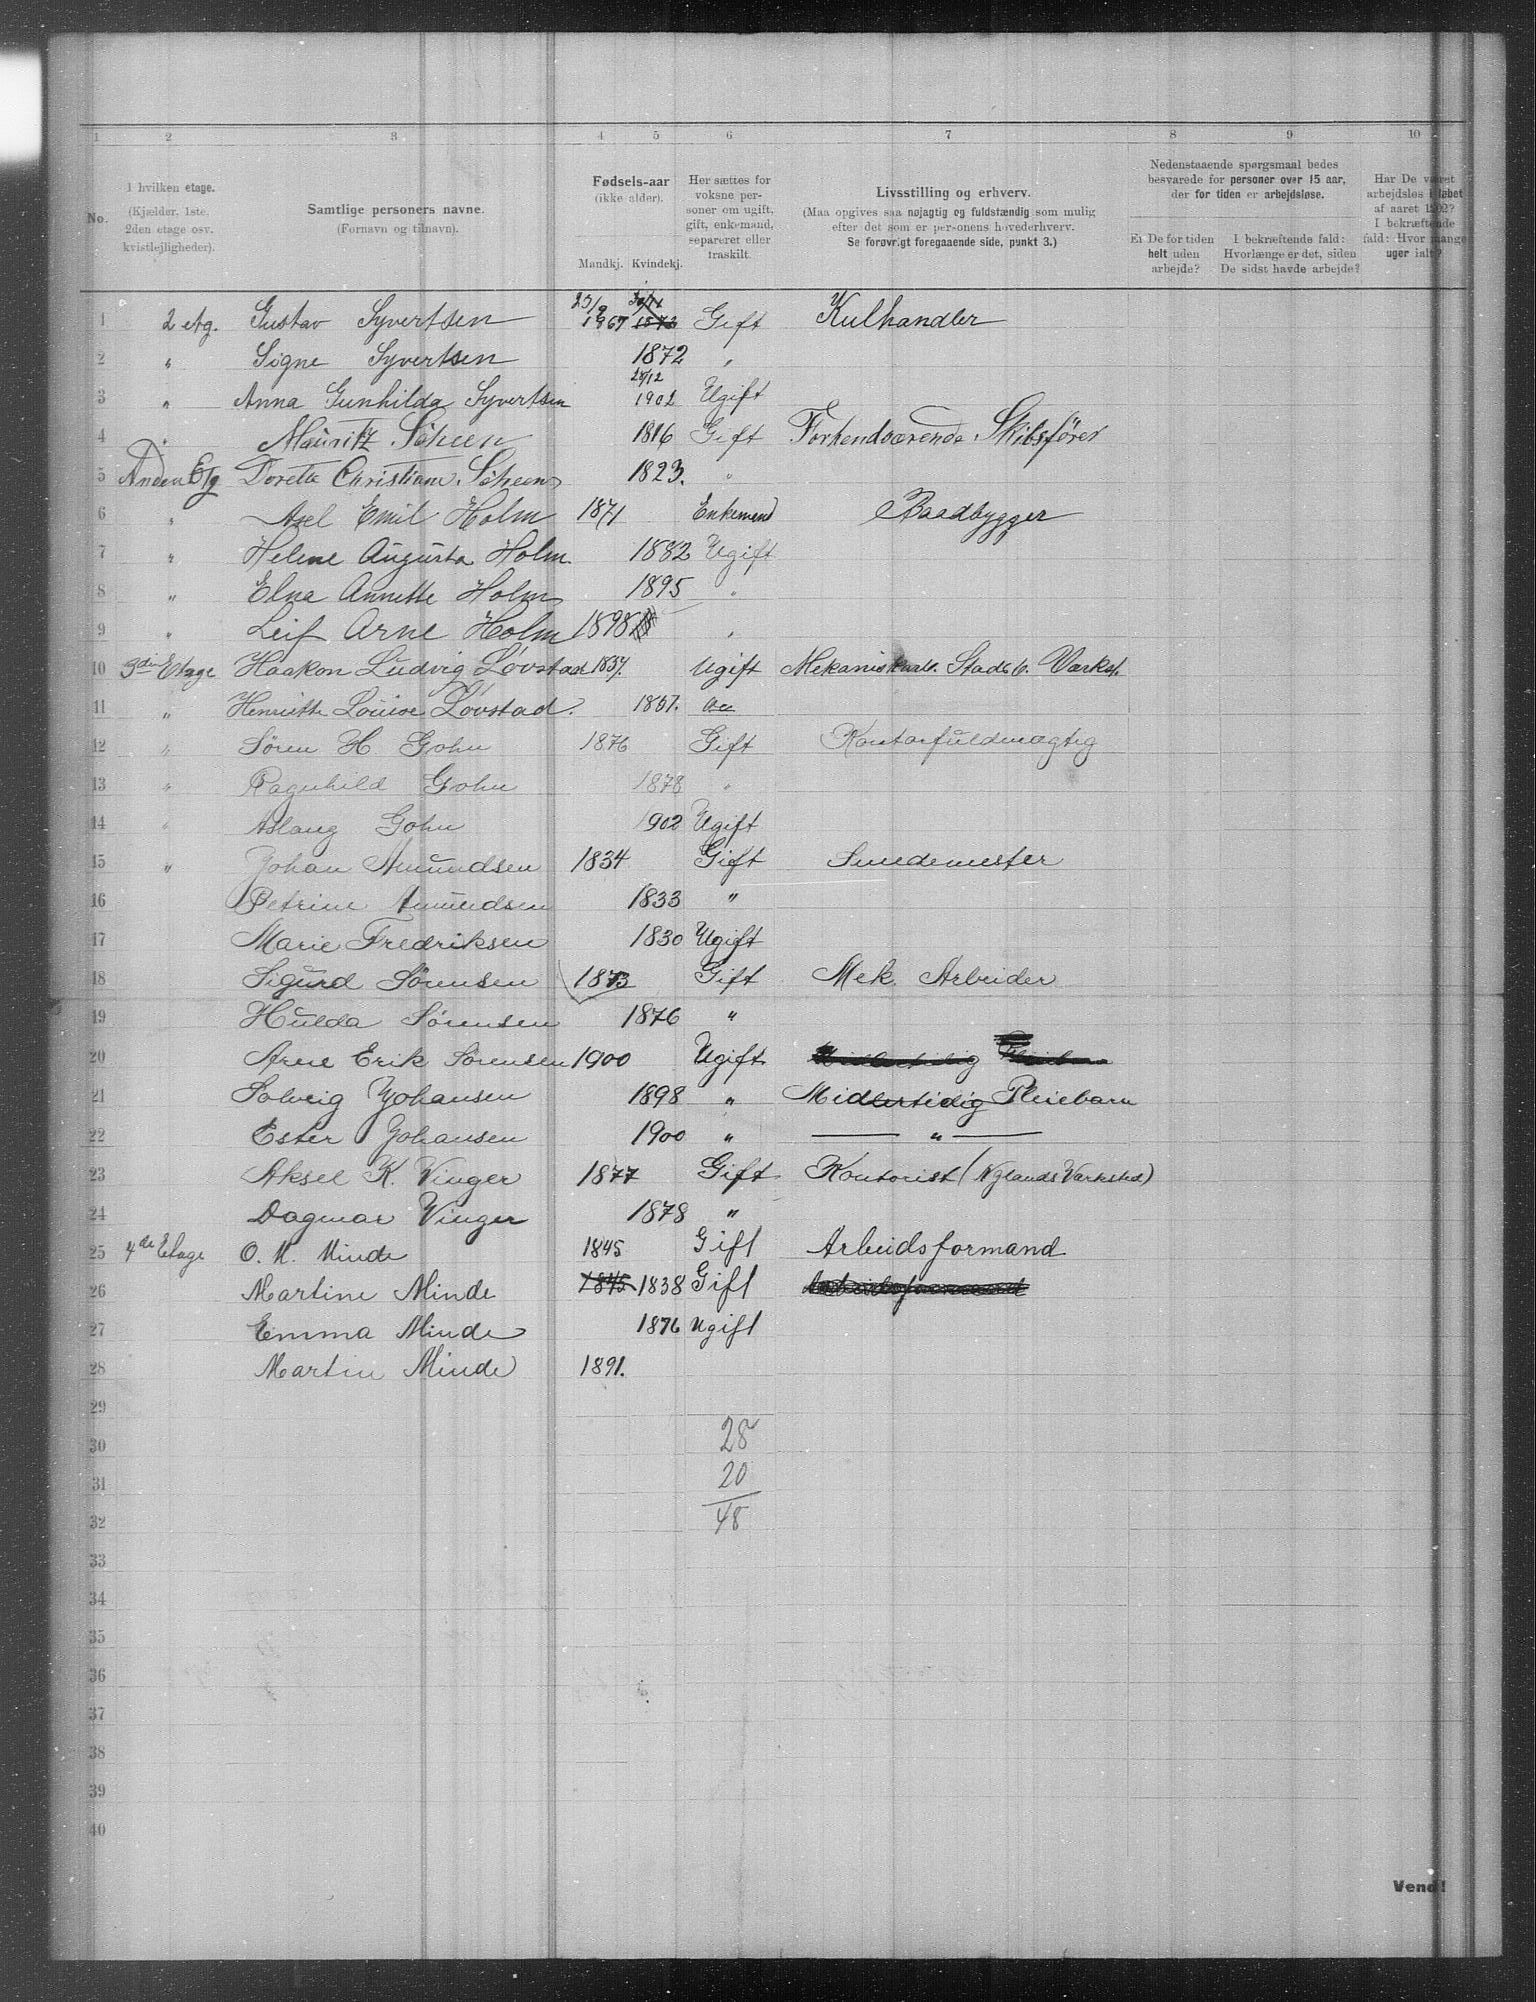 1 2 3 4 5 6 7 8 9 10
No.
I hvilken etage.
(Kjælder, 1ste, 2den etage osv. kvistlejligheder).
Samtlige personers navne.
(Fornavn og tilnavn).
Fødsels-aar
(ikke alder).
Mandkj. Kvindekj.
Her sættes for voksne personer om ugift, gift, enkemand, separeret eller fraskilt.
Livsstilling og erhverv.
(Maa opgives saa nøjagtig og fuldstændig som mulig
efter det som er personens hovederhverv.
Se forøvrigt foregaaende side, punkt 3.)
Nedenstaaende spørgsmaal bedes
besvarede for personer over 15 aar,
der for tiden er arbejdsløse.
Er De for tiden helt uden arbejde?
I bekræftende fald: Hvorlænge er det, siden De sidst havde arbejde?
Har De været arbejdsløs i løbet af aaret 1902? I bekræftende fald: Hvor mange uger ialt?
1 2 etg. Gustav Syvertsen 25/9 1867 1872 Gift Kulhandler
2 " Signe Syvertsen 1872 "
3 " Anna Gunhilda Syvertsen 28/12 1902 Ugift
4 " Mauritz Scheen 1816 Gift Forhendværende Skibsfører
5 Anden Etg Dorette Christiane Scheen 1823. "
6 " Axel Emil Holm 1871 Enkemend Baadbygger
7 " Helene Augusta Holm 1882 Ugift
8 " Elna Annette Holm 1895 "
9 " Leif Arne Holm 1898 "
10 3die Etage Haakon Ludvig Løvstad 1837. Ugift Mekanisk Stads Værkst.
11 " Henriette Louise Løvstad. 1857.
12 " Søren H. Gohn 1876 Gift Kontorfuldmægtig
13 " Ragnhild Gohn 1878 "
14 " Aslaug Gohn 1902 Ugift
15 " Johan Amundsen 1834 Gift Smedemester
16 Petrine Amundsen 1833 "
17 Marie Fredriksen 1830 Ugift
18 Sigurd Sørensen 1873 Gift Mek. Arbeider
19 Hulda Sørensen 1876 "
20 Arne Erik Sørensen 1900 Ugift Midlertidig Pleiebarn
21 Solveig Johansen 1898 " Midlertidig Pleiebarn
22 Ester Johansen 1900 " — " —
23 Aksel K. Vinger 1877 Gift Kontorist (Nylands Værksted)
24 Dagmar Vinger 1878 "
25 4de Etage O. M. Minde 1845 Gift Arbeidsformand
26 Martine Minde 1845 1838 Gift Arbeidsformand
27 Emma Minde 1876 Ugift
28 Martin Minde 1891.
29
30 28
31 20
32 48
33
34
35
36
37
38
39
40
Vend!